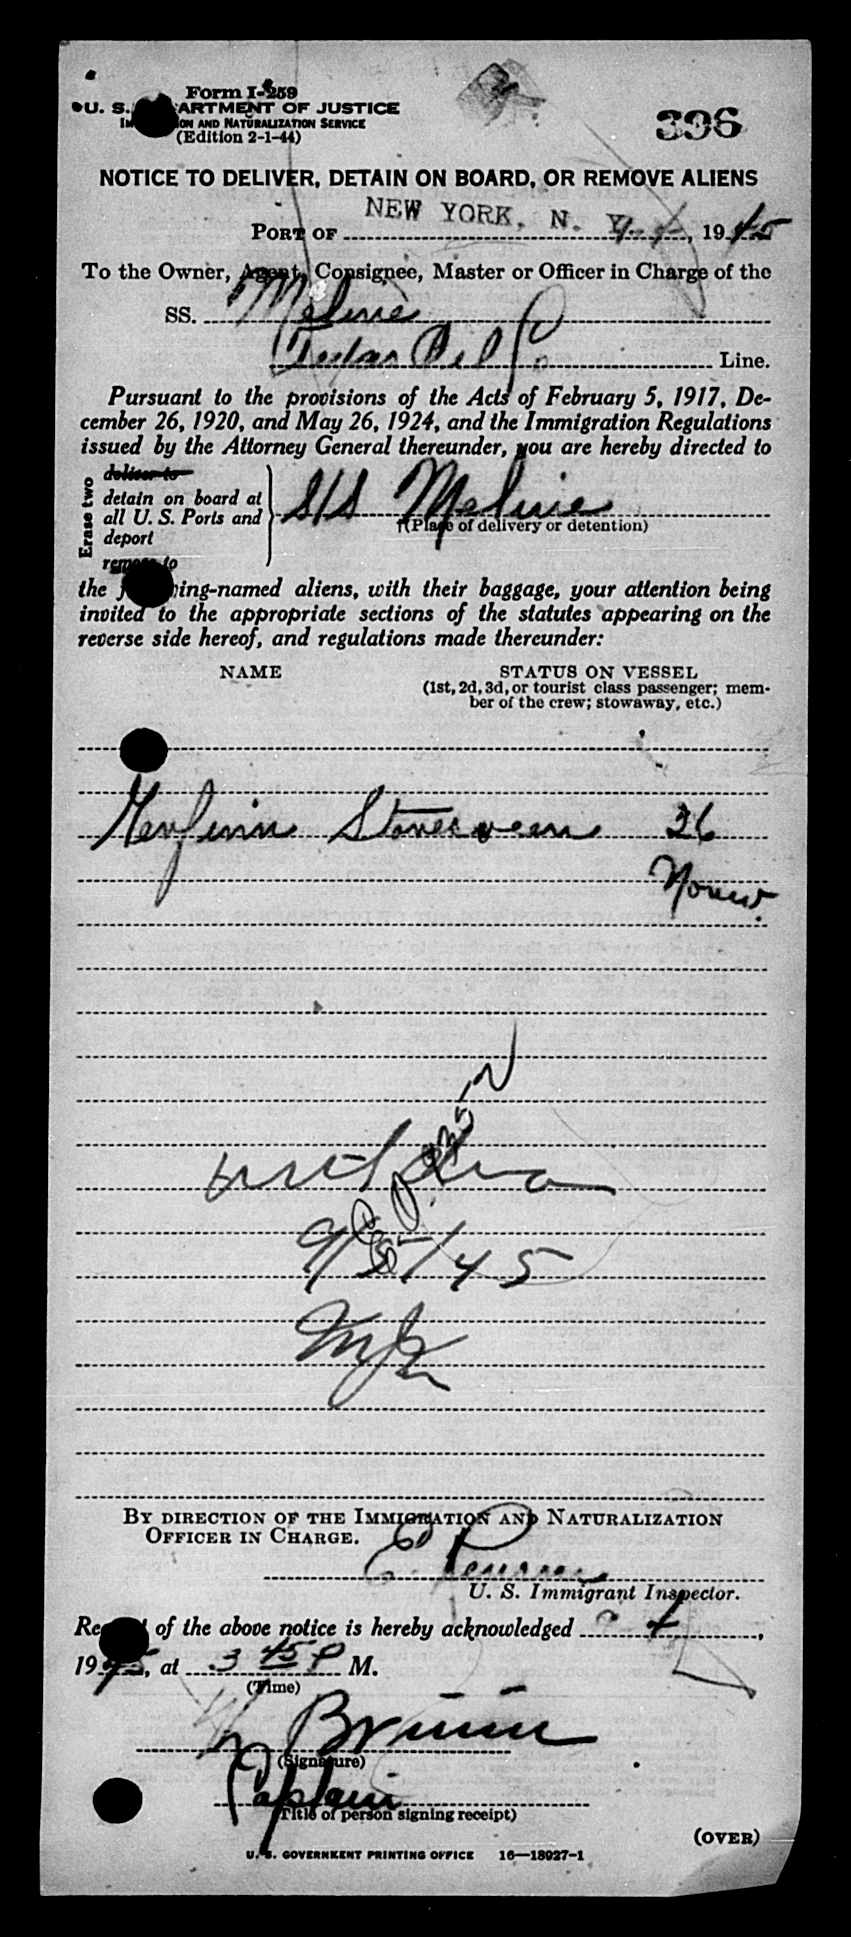 Form I-259
U. S. DEPARTMENT OF JUSTICE
IMMIGRATION AND NATURALIZATION SERVICE
(Edition 2-1-44)
396
NOTICE TO DELIVER, DETAIN ON BOARD, OR REMOVE ALIENS
PORT OF NEW YORK, N. Y. 1945
To the Owner, Agent, Consignee, Master or Officer in Charge of the
SS. Meline
Line.
Pursuant to the provisions of the Acts of February 5, 1917, De-
cember 26, 1920, and May 26, 1924, and the Immigration Regulations
issued by the Attorney General thereunder, you are hereby directed to
Erase two
deliver to
detain on board at
all U. S. Ports and
deport
remove to
S/S Meline
(Place of delivery or detention)
the following-named aliens, with their baggage, your attention being
invited to the appropriate sections of the statutes appearing on the
reverse side hereof, and regulations made thereunder:
NAME STATUS ON VESSEL
(1st, 2d, 3d, or tourist class passenger; mem-
ber of the crew; stowaway, etc.)
26
Norw.
45
BY DIRECTION OF THE IMMIGRATION AND NATURALIZATION
OFFICER IN CHARGE.
U. S. Immigrant Inspector.
Receipt of the above notice is hereby acknowledged
1945, at 3 45 P M.
(Time)
(Signature)
Captain
(Title of person signing receipt)
(OVER)
U. S. GOVERNMENT PRINTING OFFICE 16—18927-1